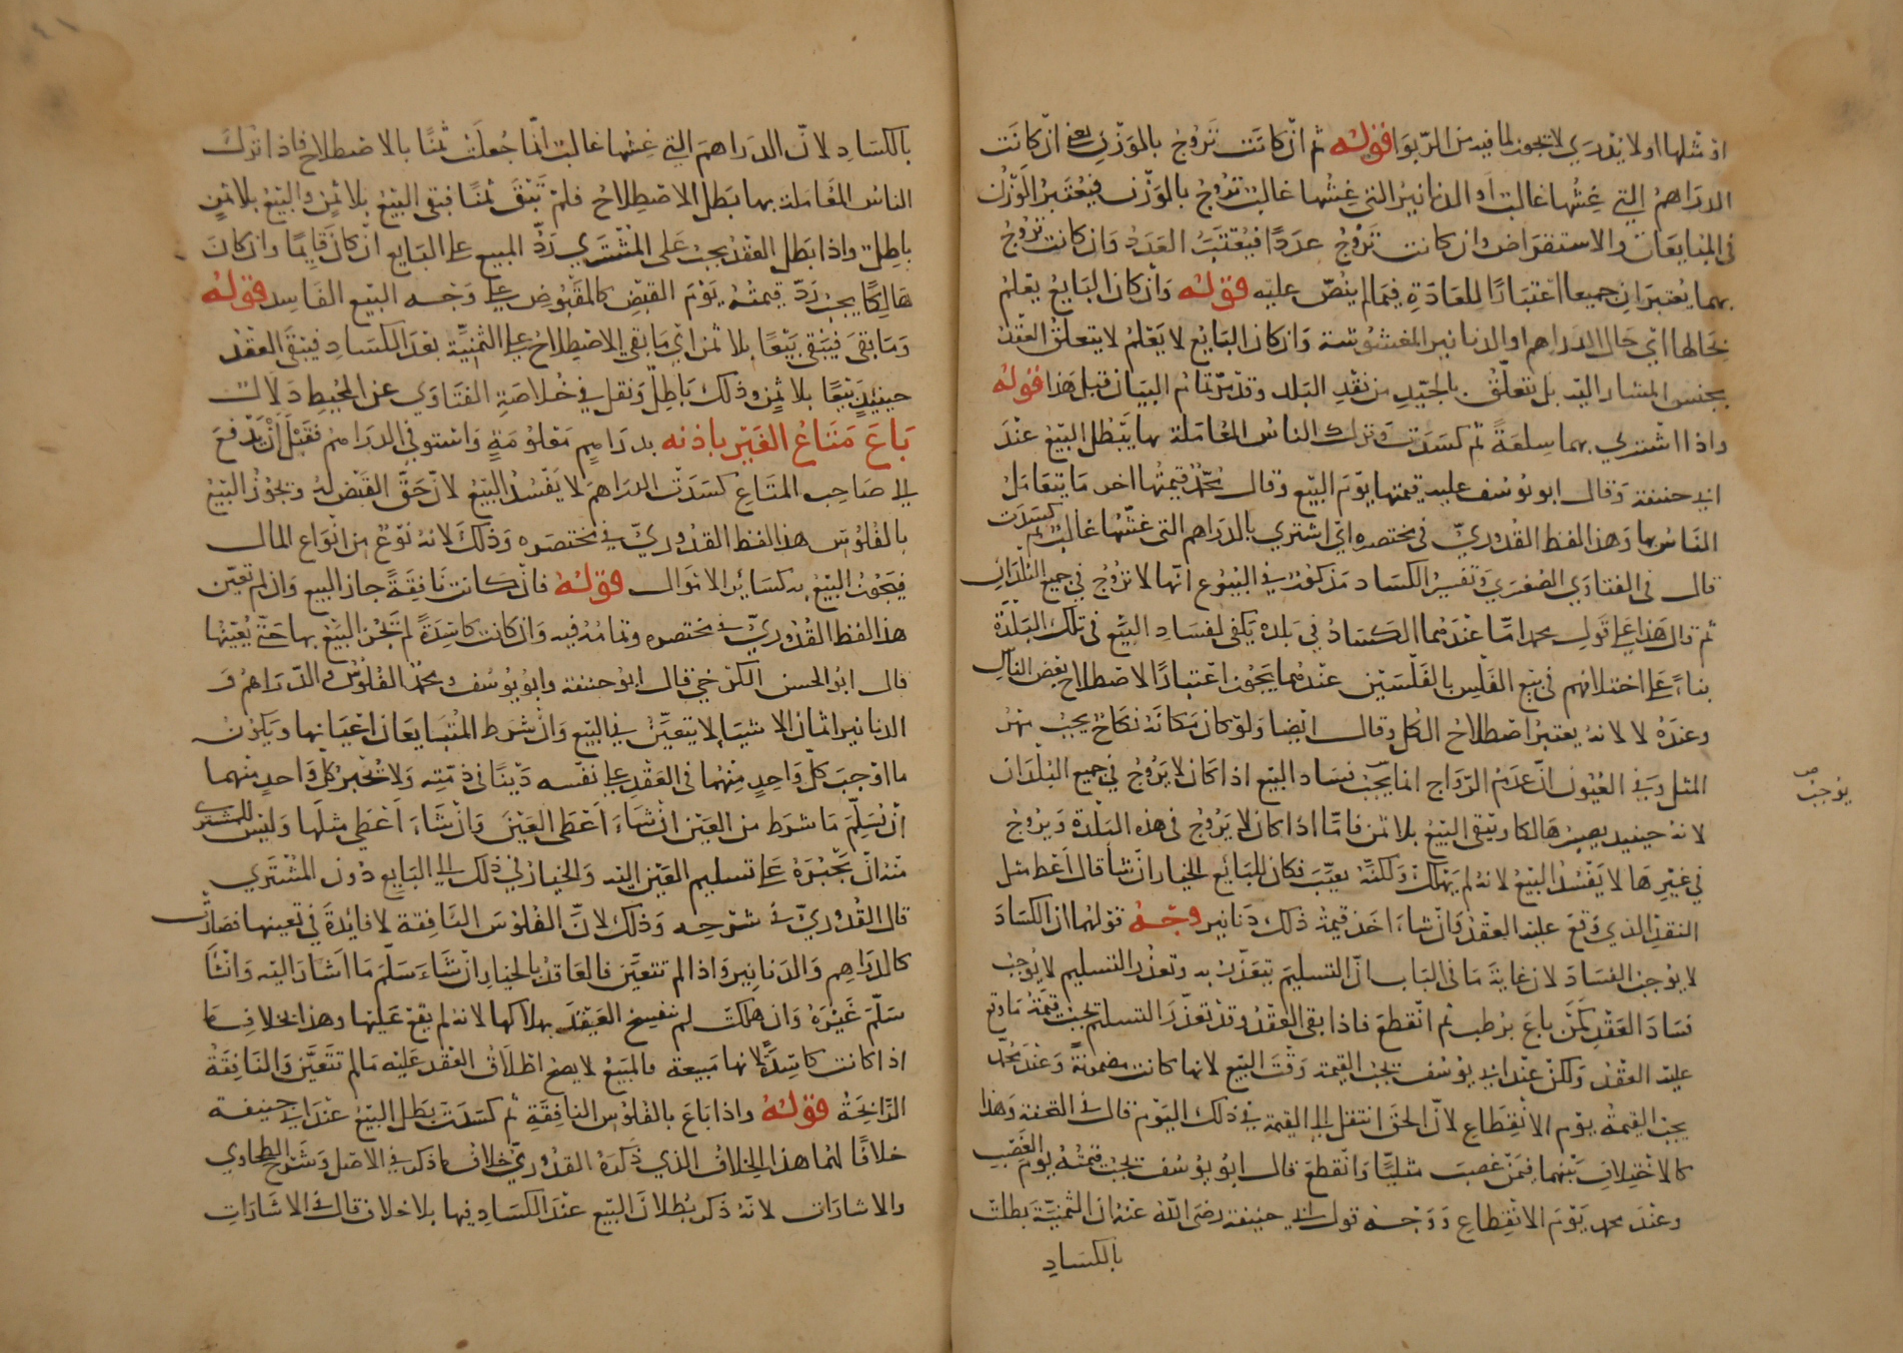 او مثلها او لا يدري لا يجوز لما فيه من الربوا قوله ثم ان كانت تروج بالوزن يعني ان كانت
الدراهم التي غشها غالب او الدنانير التي غشها غالب تروج بالوزن فيعتبر الوزن
في المبايعات والاستقراض وان كانت تروج عددا فيعتبر العدد وان كانت تروج
بهما يعتبران جميعا اعتبارا للعادة فيما لم ينص عليه قوله وان كان البايع يعلم
بحالها اي حال الدراهم والدنانير المغشوشة وان كان البايع لا يعلم لا يتعلق العقد
بجنس المشار اليه بل يتعلق بالجيد من نقد البلد وقد مر تمام البيان قبل هذا قوله
واذا اشتري بهما سلعة ثم كسدت وترك الناس المعاملة بها يبطل البيع عند
ابي حنيفة وقال ابو يوسف عليه قيمتها يوم البيع وقال محمد قيمتها اخر ما يتعامل
الناس بها وهذا لفظ القدوري في مختصره اي اشتري بالدراهم التي غشها غالب ثم كسدت
قال في الفتاوي الصغري وتفسير الكساد مذكور في البيوع انها لا تروج في جميع البلدان
ثم قال هذا علي قول محمد اما عندهما الكساد في بلدة يكفي لفساد البيع في تلك البلدة
بناء علي اختلافهم في بيع الفلس بالفلسين عندهما يجوز اعتبارا لاصطلاح بعض الناس
وعنده لا لانه يعتبر اصطلاح الكل وقال ايضا ولو كان مكانه نكاح يجب مهر
المثل وفي العيون ان عدم الرواج انما يجب فساد البيع اذا كان لا يروج في جميع البلدان
يوجب صح
لانه حينيذ يصير هالكا ويبقي البيع بلا ثمن فاما اذا كان لا يروج في هذه البلدة ويروج
في غيرها لا يفسد البيع لانه لم يهلك ولكنه تعيب فكان للبايع الخيار ان شا قال اعط مثل
النقد الذي وقع عليه العقد وان شاء اخذ قيمة ذلك دنانير وجه قولهما ان الكساد
لا يوجب الفساد لان غاية ما في الباب ان التسليم يتعذر به وتعذر التسليم لا يوجب
فساد العقد كمن باع برطب ثم انقطع فاذا بقي العقد وقد تعذر التسليم تجب قيمة ما وقع
عليه العقد ولكن عند ابي يوسف تجب القيمة وقت البيع لانها كانت مضمونة وعند محمد
يجب القيمة يوم الانقطاع لان الحق انتقل الي القيمة في ذلك اليوم قال في التحفة وهذا
كالاختلاف بينهما فيمن غصب مثليا وانقطع قال ابو يوسف تجب قيمته يوم الغصب
وعند محمد يوم الانقطاع ووجه قول ابي حنيفة رضي الله عنه ان الثمنية بطلت
بالكساد
بالكساد لان الدراهم التي غشها غالب انما جعلت ثمنا بالاصطلاح فاذا ترك
الناس المعاملة بها بطل الاصطلاح فلم تبق ثمنا فبقي البيع بلا ثمن والبيع بلا ثمن
باطل واذا بطل العقد يجب علي المشتري رد المبيع علي البايع ان كان قايما وان كان
هالكا يجب رد قيمته يوم القبض كالمقبوض علي وجه البيع الفاسد قوله
وما بقي فيبقي بيعا بلا ثمن اي ما بقي الاصطلاح علي الثمنية بعد الكساد فيبقي العقد
حينيذ بيعا بلا ثمن وذلك باطل ونقل في خلاصة الفتاوي عن المحيط دلال
باع متاع الغير باذنه بدراهم معلومة واستوفي الدراهم فقبل ان يدفع
الي صاحب المتاع كسدت الدراهم لا يفسد البيع لان حق القبض له ويجوز البيع
بالفلوس هذا لفظ القدوري في مختصره وذلك لانه نوع من انواع المال
فيجوز البيع به كساير الاموال قوله فان كانت نافقة جاز البيع وان لم تعين
هذا لفظ القدوري في مختصره وتمامه فيه وان كانت كاسدة لم يجز البيع بها حتي يعينها
قال ابو الحسن الكرخي قال ابو حنيفة وابو يوسف ومحمد الفلوس والدراهم و
الدنانير اثمان الاشيا لا يتعين في البيع وان شرط المتبايعان اعيانها ويكون
ما اوجب كل واحد منهما في العقد علي نفسه دينا في ذمته ولا يجبر كل واحد منهما
ان يسلم ما شرط من العين ان شاء اعطي العين وان شاء اعطي مثلها وليس للمشتري
منه ان يجبره علي تسليم العين اليه والخيار في ذلك الي البايع دون المشتري
قال القدوري في شرحه وذلك لان الفلوس النافقة لا فايدة في تعيينها فصارت
كالدراهم والدنانير واذا لم تتعين فالعاقد بالخيار ان شاء سلم ما اشار اليه وان شا
سلم غيره وان هلكت لم ينفسخ العقد بهلاكها لانه لم يقع عليها وهذا بخلاف ما
اذا كانت كاسدة لانها مبيعة والمبيع لا يصح اطلاق العقد عليه ما لم تتعين والنافقة
الرايجة قوله واذا باع بالفلوس النافقة ثم كسدت بطل البيع عند ابي حنيفة
خلافا لهما هذا الخلاف الذي ذكره القدوري خلاف ما ذكر في الاصل وشرح الطحاوي
والاشارات لانه ذكر بطلان البيع عند الكساد فيها بلا خلاف قال في الاشارات